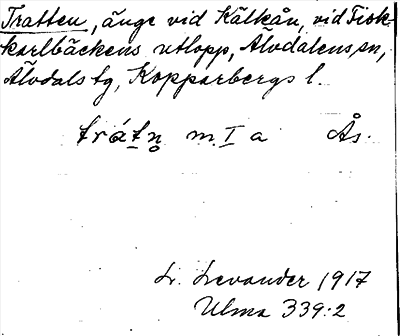 Tratten, änge vid Kälkån, vid Fisk-
karlbäckens utlopp, Älvdalens sn,
Älvdals tg, Kopparbergs l.
trátn̥ m. I a Ås.
L. Levander 1917
Ulma 339:2